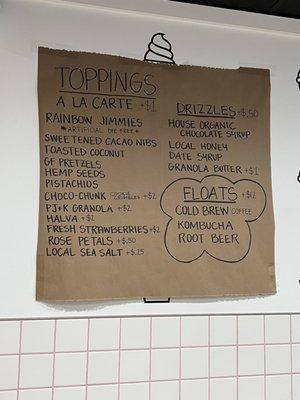 TOPPINGS
A LA CARTE +$1
RAINBOW JIMMIES
*ARTIFICIAL DYE FREE*
SWEETENED CACAO NIBS
TOASTED COCONUT
GF PRETZELS
HEMP SEEDS
PISTACHIOS
CHOCO-CHUNK COOKIE CRUMBLES +$2
PJ+K GRANOLA +$2
HALVA +$2
FRESH STRAWBERRIES +$2
ROSE PETALS +$.50
LOCAL SEA SALT +$.25
DRIZZLES +$.50
HOUSE ORGANIC
CHOCOLATE SYRUP
LOCAL HONEY
DATE SYRUP
GRANOLA BUTTER +$1
FLOATS +$12
COLD BREW COFFEE
KOMBUCHA
ROOT BEER